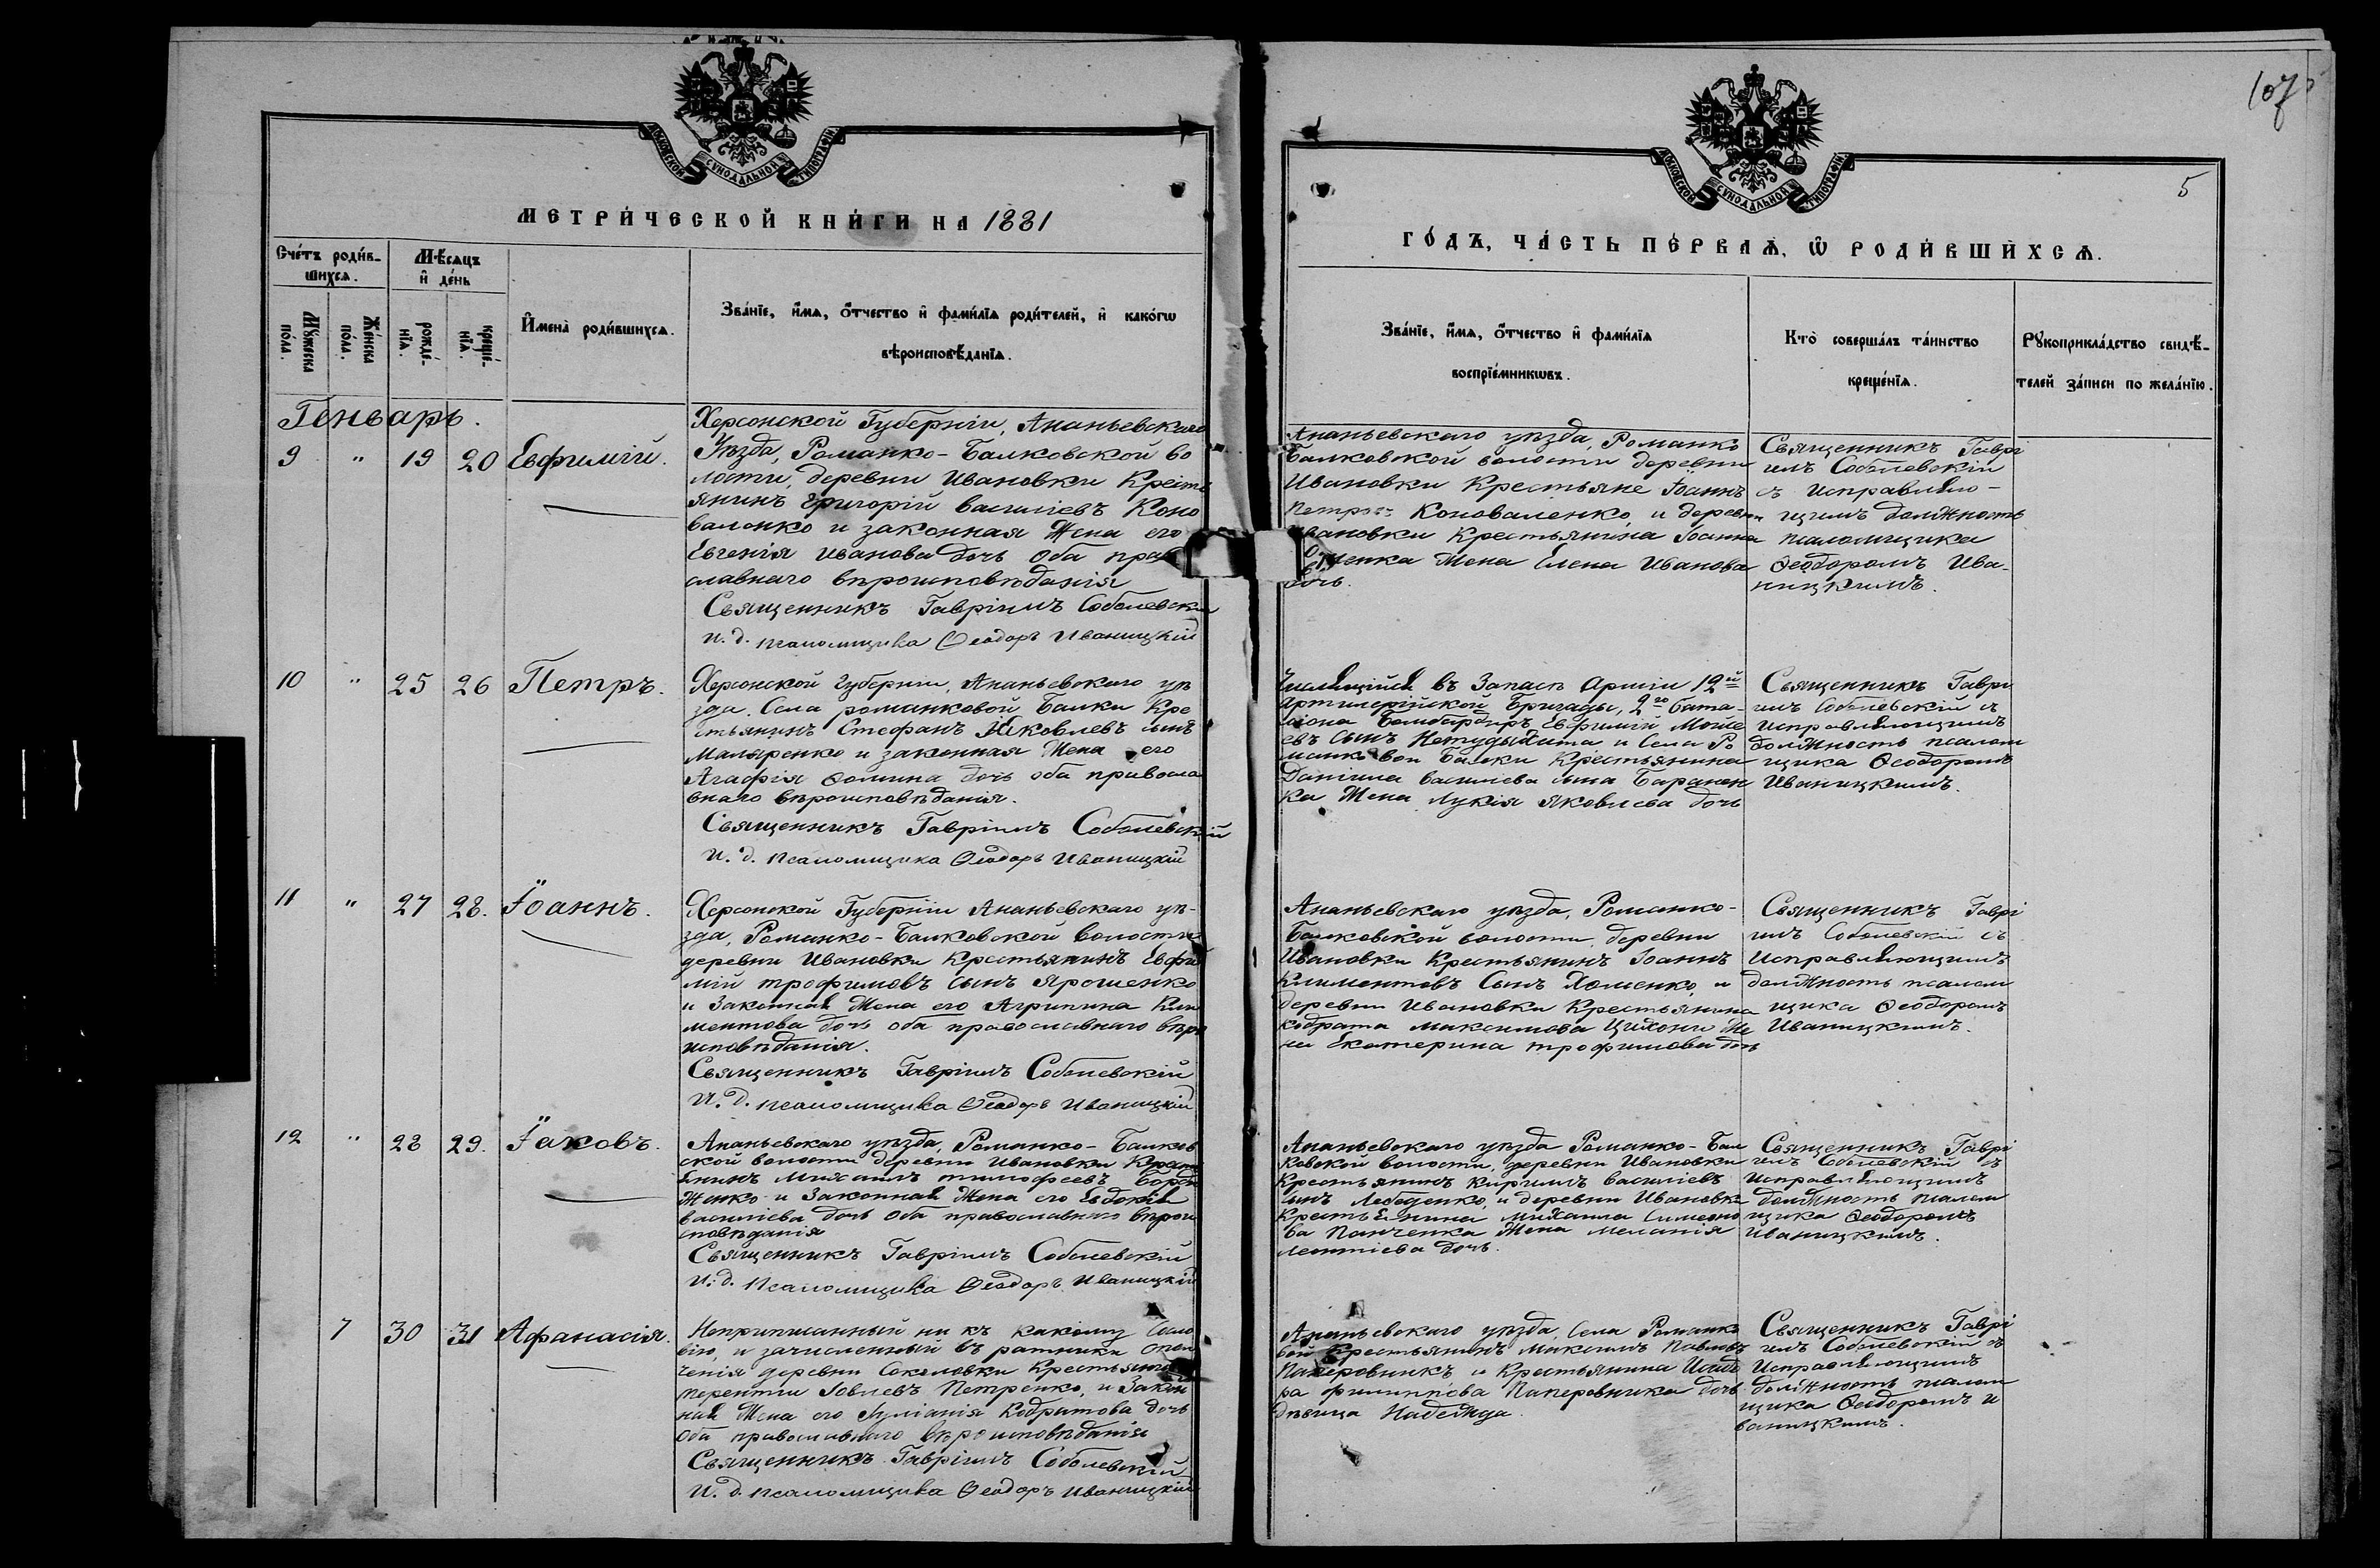 107
5
МОСКОВСКОЙ СѴНОДАЛЬНОЙ ТИПОГРАФІИ
МОСКОВСКОЙ СѴНОДАЛЬНОЙ ТИПОГРАФІИ
МЕТРИ́ЧЕСКОЙ КНИ́ГИ НА 1881
ГО́ДЪ, ЧА́СТЬ ПЕ́РВАѦ, Ѿ РОДИ́ВШИХСѦ.
Счетъ роди́в-
шихсѧ.
Мѣ́сѧцъ
и҆ де́нь
Мꙋ́жеска
по́ла.
Же́нска
по́ла.
рожде́-
нїѧ.
креще́-
нїѧ.
И҆мена̀ роди́вшихсѧ.
Зва́нїе, и҆́мѧ, о҆́тчество и҆ фами́лїѧ роди́телей, и҆ како́гѡ
вѣроисповѣ́данїѧ.
Зва́нїе, и҆́мѧ, о҆́тчество и҆ фами́лїѧ
воспрїе́мникѡвъ.
Кто̀ соверша́лъ та́инство
креще́нїѧ.
Рꙋкоприкла́дство свидѣ́-
телей за́писи по жела́нїю.
Генварь.
9 " 19 20 Евфимій.
Херсонской Губерніи, Ананьевскаго
Уѣзда, Романко-Балковской во
лости, деревни Ивановки Крестъ
янинъ Григорій Василіевъ Коно
валенко и законная Жена его
Евгенія Иванова дочь оба пра
славнаго вѣроисповѣданія
Священникъ Гавріилъ Соболевскі
И. д. псаломщика Ѳеодоръ Иваницкій
Ананьевскаго уѣзда, Романко
Балковской волости деревни
Ивановки Крестьяне Іоаннъ
Петровъ Коноваленко, и деревни
Ивановки Крестьянина Іоанна
Жена Елена Иванова
дочь.
Священникъ Гаврі
илъ Соболевскій
съ исправляю-
щимъ должность
псаломщика
Ѳеодоромъ Ива-
ницкимъ.
10 " 25 26 Петръ.
Херсонской Губерніи, Ананьевскаго уѣ
зда. Села Романковой Балки Кре
стьянинъ Стефанъ Яковлевъ сынъ
Маляренко и законная Жена его
Агафія Ѳомина дочь оба правосла
внаго вѣроисповѣданія.
Священникъ Гавріилъ Соболевскій
И. д. псаломщика Ѳеодоръ Иваницкій
Числящійся въ Запасѣ Арміи 19й
Артилерійской Бригады, 2го бата-
ліона Бомбардиръ Евфимій Мойсе
евъ сынъ и Села Ро
манковой Балки Крестьянина
Даніила Василіева сына Баранен
ка Жена Лукія Яковлева дочь
Священникъ Гаврі
илъ Соболевскій съ
исправляющимъ
должность псалом
щика Ѳеодоромъ
Иваницкимъ.
11 " 27 28. Іоаннъ.
Херсонской Губерніи Ананьевскаго уѣ-
зда, Романко-Балковской волости
деревни Ивановки Крестьянинъ Евфи
мій Трофимовъ сынъ Ярошенко
и Законная Жена его Агрипина Кли
ментова дочь оба православнаго вѣро
исповѣданія.
Священникъ Гавріилъ Соболевскій
И. д. псаломщика Ѳеодоръ Иваницкій
Ананьевскаго уѣзда, Романко-
Балковской волости, деревни
Ивановки Крестьянинъ Іоаннъ
Климентовъ Сынъ Хоменко, и
деревни Ивановки Крестьянина
Кодрата Максимова Цихони Же
на Екатерина Трофимова дочь
Священникъ Гаврі
илъ Соболевскій съ
Исправляющимъ
должность псалом
щика Ѳеодоромъ
Иваницкимъ.
12 " 28 29. Іаковъ.
Ананьевскаго уѣзда, Романко-Балков
ской волости деревни Ивановки Крест
янинъ Михаилъ Тимофеевъ
женко и Законная Жена его Евдокія
Василіева дочь оба православнаго вѣрои
сповѣданія
Священникъ Гавріилъ Соболевскій
И. д. Псаломщика Ѳеодоръ Иваницкій
Ананьевскаго уѣзда Романко-Бал
ковской волости, деревни Ивановки
Крестьянинъ Кирилъ Василіевъ
сынъ Лебеденко, и деревни Ивановки
Крестьянина Михаила Симеоно
ва Панченка Жена Меланія
Леонтіева дочь.
Священникъ Гаврі
илъ Соболевскій съ
исправляющимъ
должность псалом
щика Ѳеодоромъ
Иваницкимъ.
7 30 31 Афанасія.
Неприписанный ни къ какому сосло
вію, и зачисленный въ ратники опол
ченія деревни Соколовки Крестьянинъ
Терентій Іовлевъ Петренко, и Закон
ная Жена его Іуліанія Кодратова дочь
Оба православнаго вѣроисповѣданія
Священникъ Гавріилъ Соболевскій
И. д. псаломщика Ѳеодоръ Иваницкій
Ананьевскаго уѣзда, Села Романко
вой Крестьянинъ Максимъ Павловъ
Паперовникъ и Крестьянина Исид
ра Филиппова Паперовника дочь
дѣвица Надежда.
Священникъ Гаврі
илъ Соболевскій съ
Исправляющимъ
должность псалом
щика Ѳеодоромъ И
ваницкимъ.